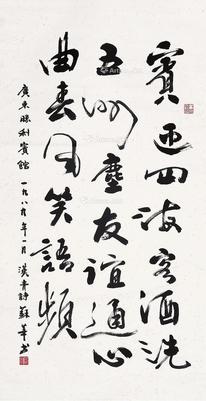 賓迎四海客酒洗
五洲塵友誼通心
曲春風笑語頻
廣東勝利賓館 一九八九年一月 漢青詩蘇華書